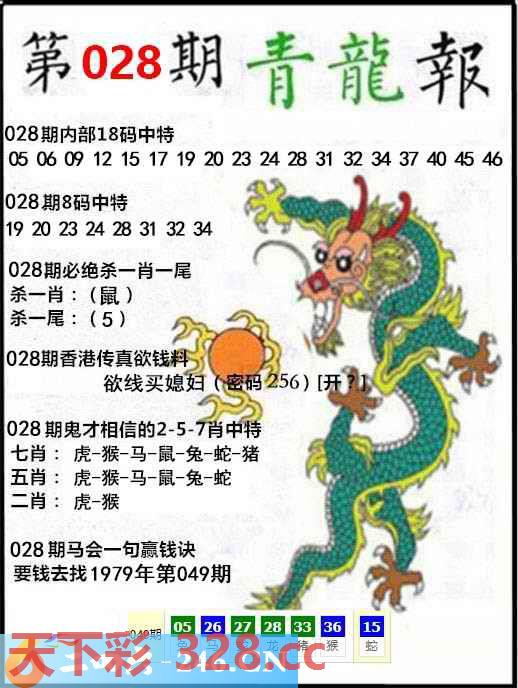 第028期青龍報
028期内部18码中特
05 06 09 12 15 17 19 20 23 24 28 31 32 34 37 40 45 46
028期8码中特
19 20 23 24 28 31 32 34
028期必绝杀一肖一尾
杀一肖：（鼠）
杀一尾：（5）
028期香港传真欲钱料
欲线买媳妇（密码256）[开？]
028期鬼才相信的2-5-7肖中特
七肖： 虎-猴-马-鼠-兔-蛇-猪
五肖： 虎-猴-马-鼠-兔-蛇
二肖： 虎-猴
028期马会一句赢钱诀
要钱去找1979年第049期
049期 05 26 27 28 33 36 15
兔 马 龙 猪 猴 蛇
天下彩-328.cc